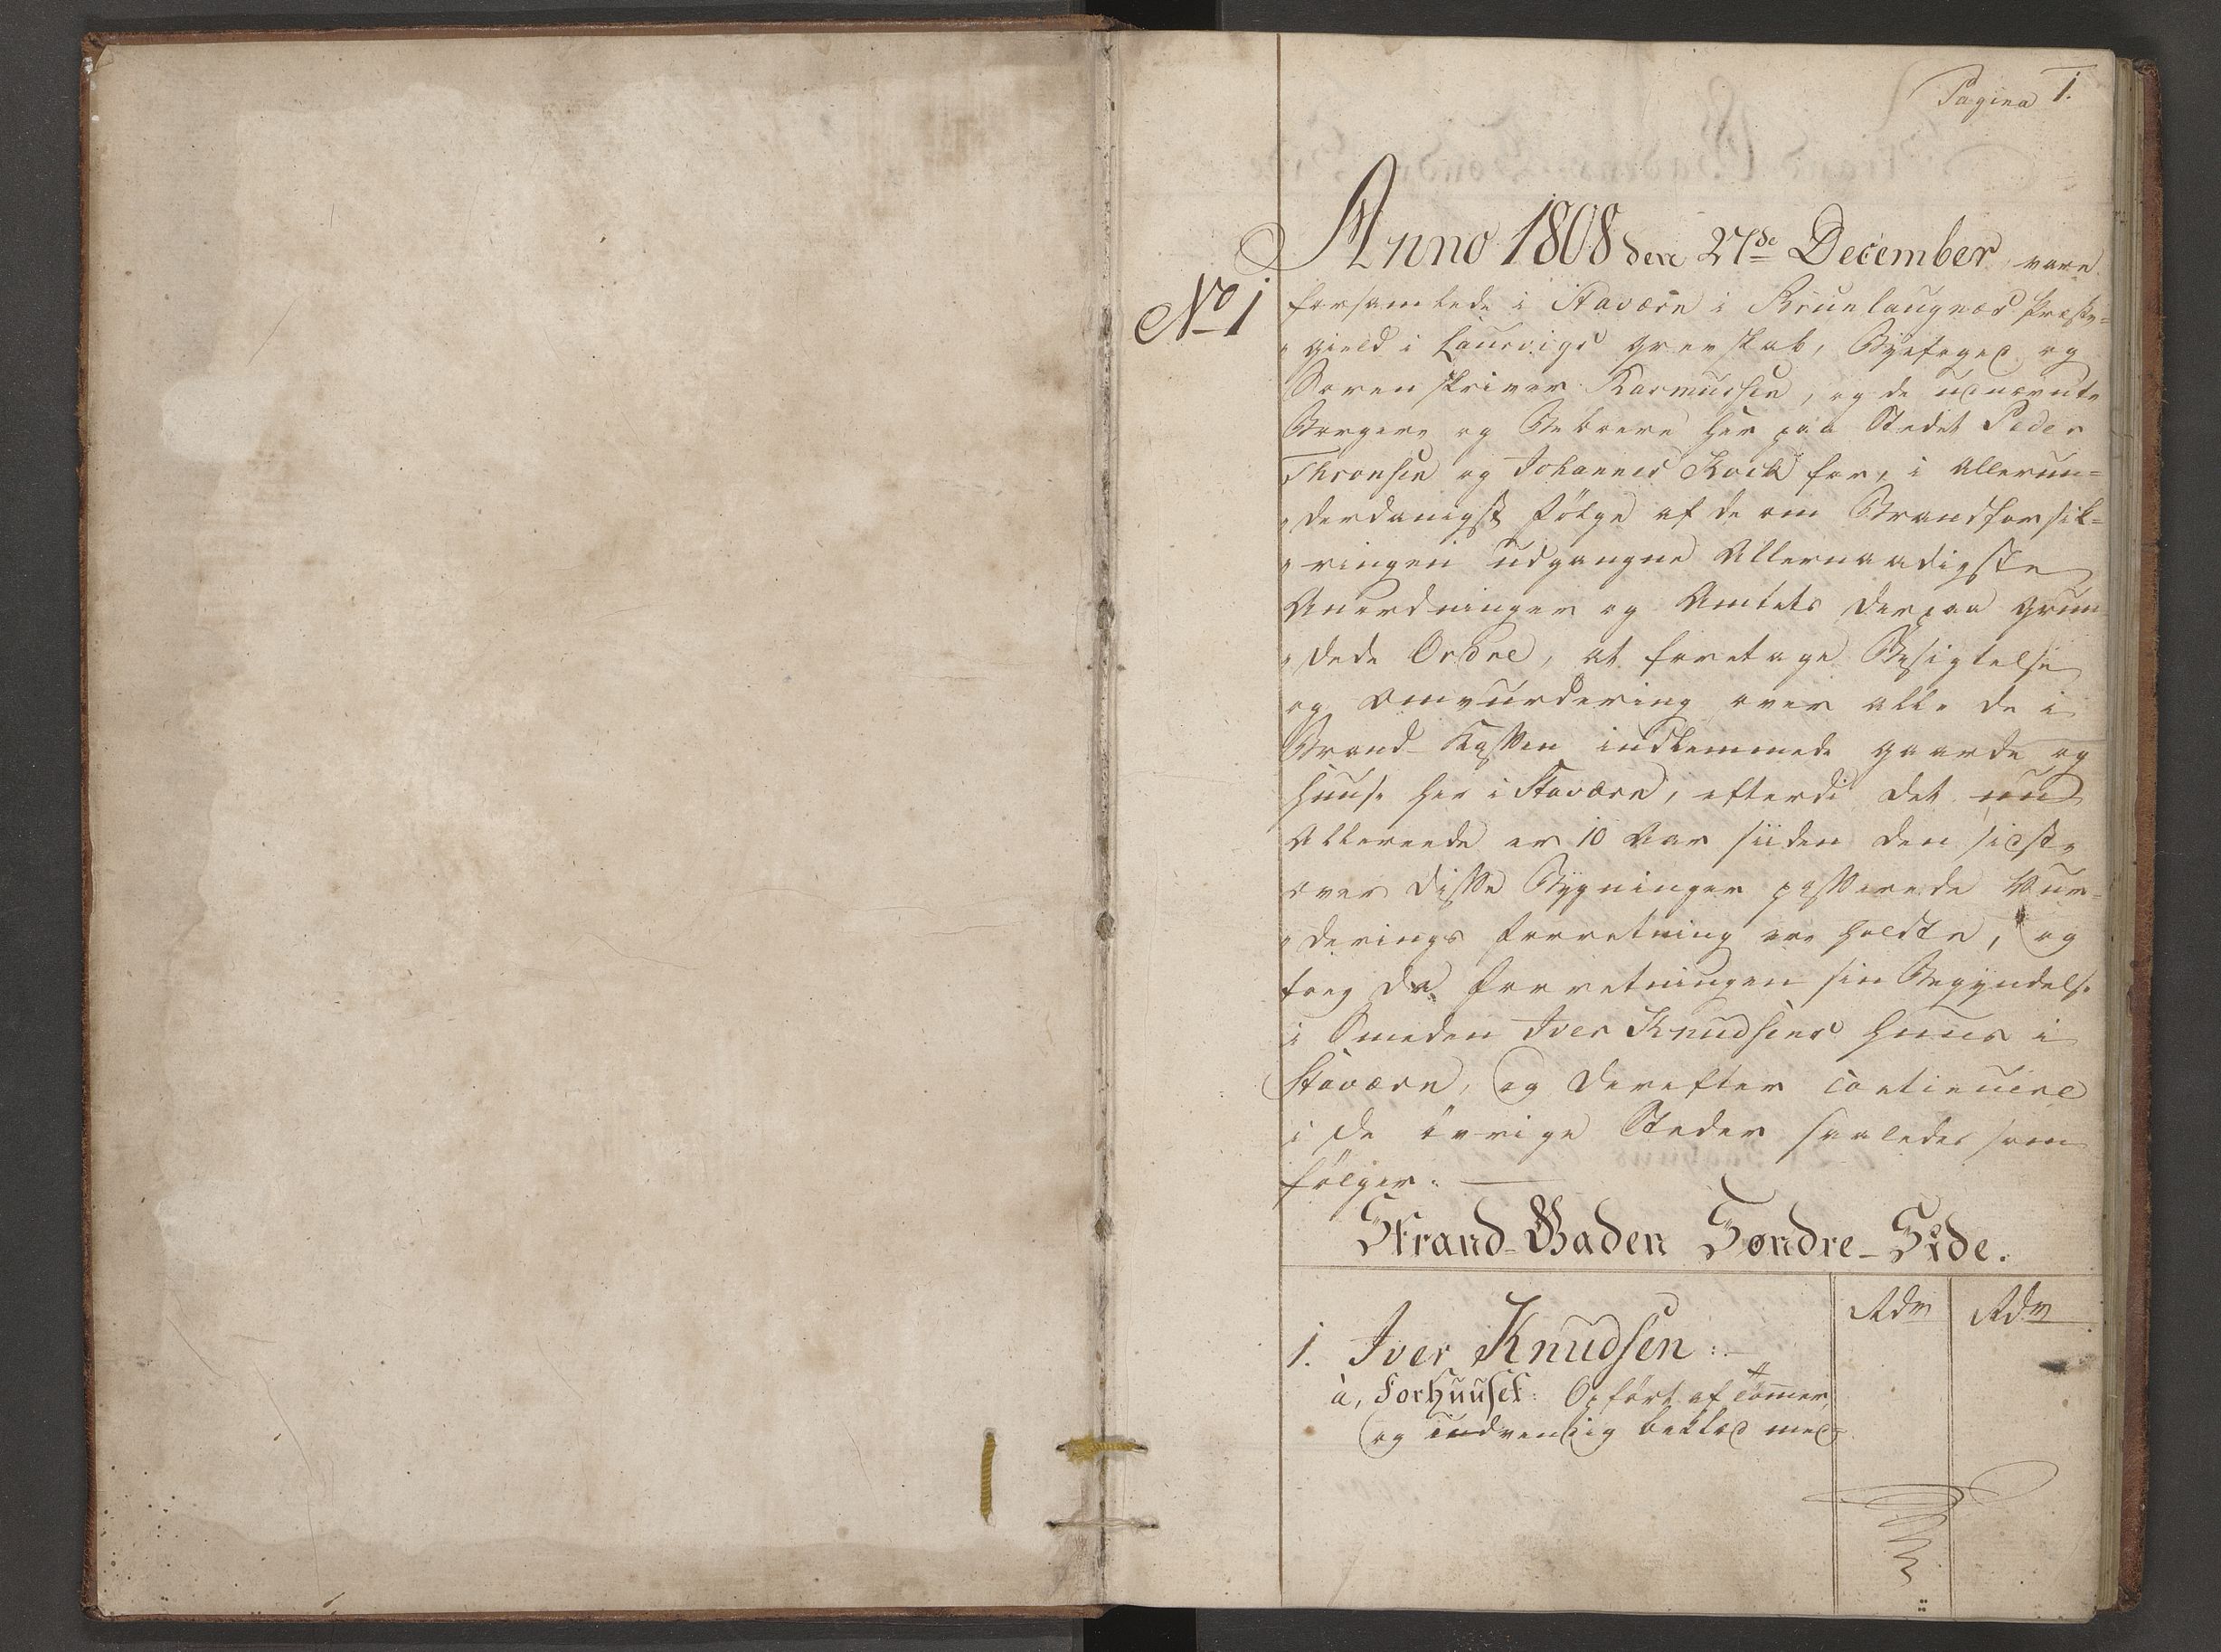 Pagina 1.
Anno 1808 den 27de December vare
No 1
forsamlede i Staværn i Brunlaugnæs Præste=
„gield i Laurvigs Grevskab, Byefoged og
Sorenskriver Rasmussen, og de udnævnte
Borgere og Beboere her paa Stedet Peder
Thronsen og Johannes Kock for, i Allerun=
„derdanigst Følge af de om Brandforsik=
„ringen udgangne Allernaadigste
Anordninger og Amtets derpaa grun
„dede Ordre, at foretage Besigtelse
og Omvurdering over alle de i
Brand-Kassen indlemmede Gaarde og
Huuse her i Staværn, efterdi det nu
Allereede er 10 Aar siiden den sidste
over disse Bygninger passerede Vur=
„derings Forretning er holdte, og
tog da Forretningen sin Begyndelse
i Smeden Iver Knudsens Huus i
Staværn, og derefter continuere
i de øvrige Steder saaledes som
følger:
Strand-Gaden Søndre-Side.
Rdr Rdr
1. Iver Knudsen:
a, Forhuuset: Opført af Tømmer,
og indvendig beklæd med